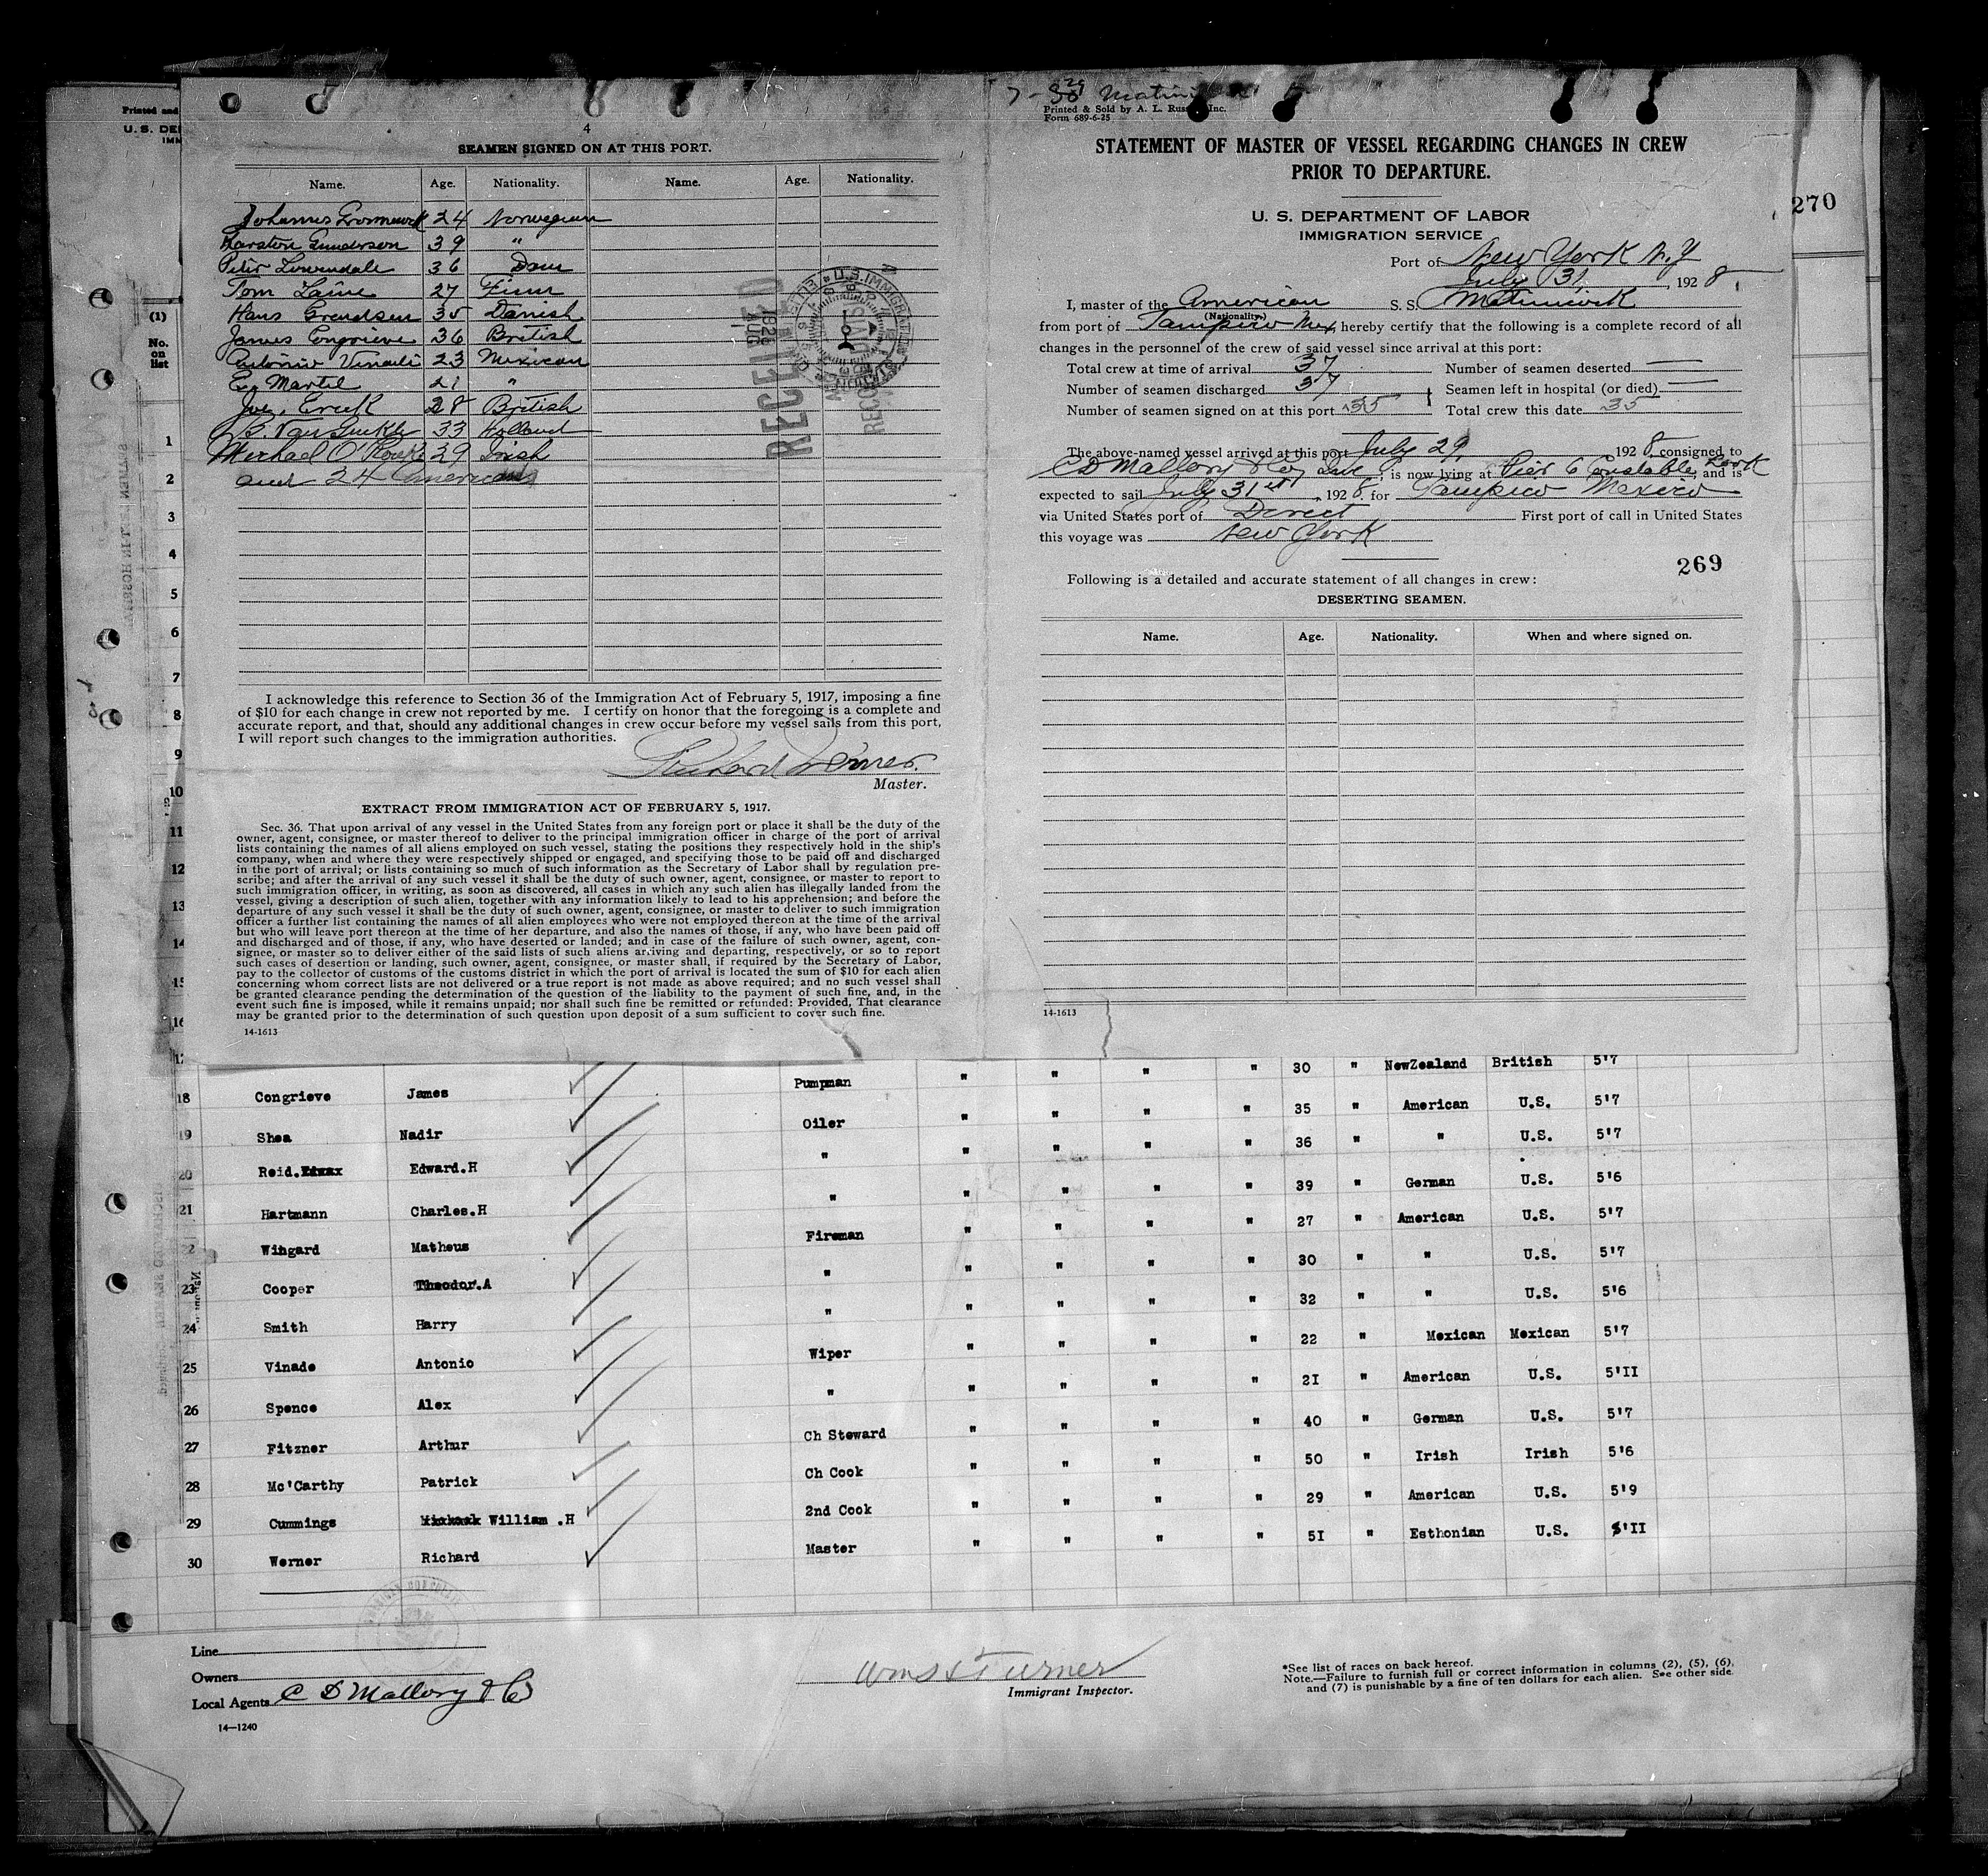 Printed and
U. S. DE
IMM
(1)
No.
on
list
1
2
3
4
5
6
7
8
9
10
11
12
13
14
15
16
4
SEAMEN SIGNED ON AT THIS PORT.
Name. Age. Nationality. Name. Age. Nationality.
Johannes 24 Norwegian
Karsten Gunderson 39 "
Peter Lowendale 36 Dane
Tom Laine 27 Finn
Hans 35 Danish
James Congrieve 36 British
Antonio 23 Mexican
E. Martel 21 "
Joe. 28 British
33 Holland
Michael O'Rourke 29 Irish
and 24 Americans
RECEIVED
1928 AUG
I acknowledge this reference to Section 36 of the Immigration Act of February 5, 1917, imposing a fine
of $10 for each change in crew not reported by me. I certify on honor that the foregoing is a complete and
accurate report, and that, should any additional changes in crew occur before my vessel sails from this port,
I will report such changes to the immigration authorities.
Richard Werner.
Master.
EXTRACT FROM IMMIGRATION ACT OF FEBRUARY 5, 1917.
Sec. 36. That upon arrival of any vessel in the United States from any foreign port or place it shall be the duty of the
owner, agent, consignee, or master thereof to deliver to the principal immigration officer in charge of the port of arrival
lists containing the names of all aliens employed on such vessel, stating the positions they respectively hold in the ship's
company, when and where they were respectively shipped or engaged, and specifying those to be paid off and discharged
in the port of arrival; or lists containing so much of such information as the Secretary of Labor shall by regulation pre-
scribe; and after the arrival of any such vessel it shall be the duty of such owner, agent, consignee, or master to report to
such immigration officer, in writing, as soon as discovered, all cases in which any such alien has illegally landed from the
vessel, giving a description of such alien, together with any information likely to lead to his apprehension; and before the
departure of any such vessel it shall be the duty of such owner, agent, consignee, or master to deliver to such immigration
officer a further list containing the names of all alien employees who were not employed thereon at the time of the arrival
but who will leave port thereon at the time of her departure, and also the names of those, if any, who have been paid off
and discharged and of those, if any, who have deserted or landed; and in case of the failure of such owner, agent, con-
signee, or master so to deliver either of the said lists of such aliens arriving and departing, respectively, or so to report
such cases of desertion or landing, such owner, agent, consignee, or master shall, if required by the Secretary of Labor,
pay to the collector of customs of the customs district in which the port of arrival is located the sum of $10 for each alien
concerning whom correct lists are not delivered or a true report is not made as above required; and no such vessel shall
be granted clearance pending the determination of the question of the liability to the payment of such fine, and, in the
event such fine is imposed, while it remains unpaid; nor shall such fine be remitted or refunded: Provided, That clearance
may be granted prior to the determination of such question upon deposit of a sum sufficient to cover such fine.
14-1613
Printed & Sold by A. L. Russell, Inc.
Form 689-6-25
STATEMENT OF MASTER OF VESSEL REGARDING CHANGES IN CREW
PRIOR TO DEPARTURE.
U. S. DEPARTMENT OF LABOR
IMMIGRATION SERVICE
Port of New York N.Y
July 31, 1928
I, master of the American S. S. Matinicock
(Nationality.)
from port of Tampico Mex, hereby certify that the following is a complete record of all
changes in the personnel of the crew of said vessel since arrival at this port:
Total crew at time of arrival 37 Number of seamen deserted
Number of seamen discharged 37 Seamen left in hospital (or died)
Number of seamen signed on at this port 35 Total crew this date 35
The above-named vessel arrived at this port July 29, 1928, consigned to
C D Mallory & Co, Inc, is now lying at Pier 6 Constable Hook, and is
expected to sail July 31st, 1928. for Tampico Mexico
via United States port of Direct First port of call in United States
this voyage was New York
269
Following is a detailed and accurate statement of all changes in crew:
DESERTING SEAMEN.
Name. Age. Nationality. When and where signed on.
14-1613
270
30 " NewZealand British 5'7
18 Congrieve James Pumpman " " " " 35 " American U.S. 5'7
19 Shea Nadir Oiler " " " " 36 " " U.S. 5'7
20 Reid. Edward.H " " " " " 39 " German U.S. 5'6
21 Hartmann Charles.H " " " " " 27 " American U.S. 5'7
22 Wingard Matheus Fireman " " " " 30 " " U.S. 5'7
23 Cooper Theodor.A " " " " " 32 " " U.S. 5'6
24 Smith Harry " " " " " 22 " Mexican Mexican 5'7
25 Vinade Antonio Wiper " " " " 2I " American U.S. 5'II
26 Spence Alex " " " " " 40 " German U.S. 5'7
27 Fitzner Arthur Ch Steward " " " " 50 " Irish Irish 5'6
28 Mc'Carthy Patrick Ch Cook " " " " 29 " American U.S. 5'9
29 Cummings William .H 2nd Cook " " " " 5I " Esthonian U.S. 5'II
30 Werner Richard Master " " " "
Line
Owners
Local Agents C D Mallory & Co
14—1240
Turner
Immigrant Inspector.
*See list of races on back hereof.
Note.—Failure to furnish full or correct information in columns (2), (5), (6),
and (7) is punishable by a fine of ten dollars for each alien. See other side.